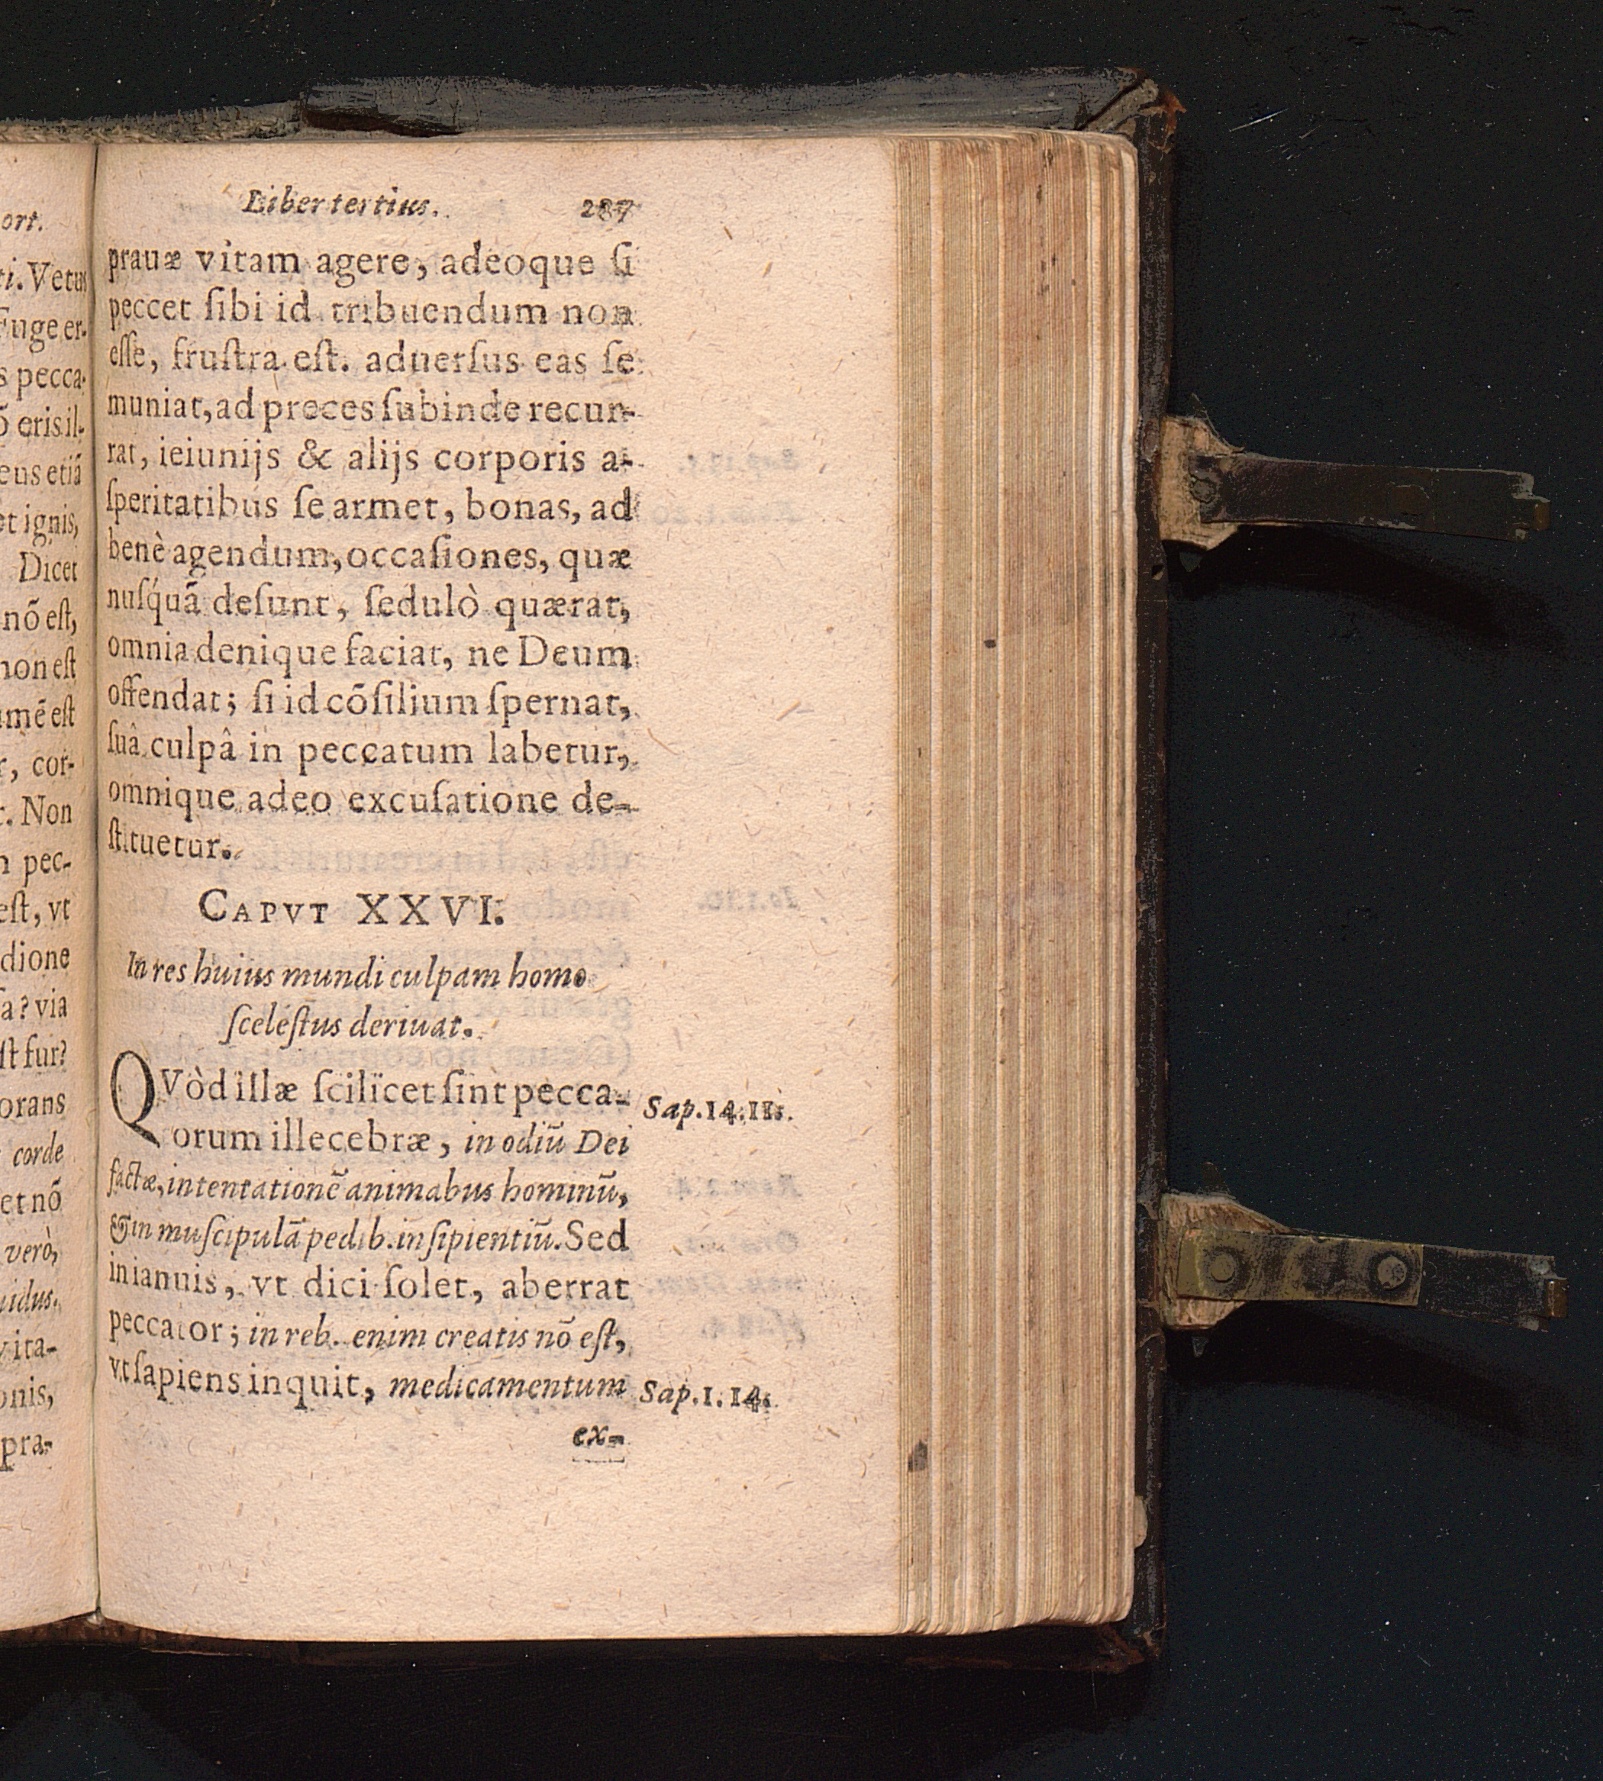 Liber tertius. 287
prauæ vitam agere, adeoque ſi
peccet ſibi id tribuendum non
eſſe, fruſtra eſt. aduerſus eas ſe
muniat, ad preces ſubinde recur-
rat, ieiunijs & alijs corporis a-
ſperitatibus ſe armet, bonas, ad
benè agendum, occaſiones, quæ
nuſquā deſunt, ſedulò quærat,
omnia denique faciat, ne Deum
offendat; ſi id cōſilium ſpernat,
ſuâ culpâ in peccatum labetur,
omnique adeo excuſatione de-
ſtituetur.
CAPVT XXVI.
In res huius mundi culpam homo
ſceleſtus deriuat.
QVòd illæ ſcilicet ſint pecca-
orum illecebræ, in odiū Dei
Sap. 14. 11.
factæ, in tentationē animabus hominū,
& in muſcipulā pedib. inſipientiū. Sed
in ianuis, vt dici ſolet, aberrat
peccator; in reb. enim creatis nō eſt,
vt ſapiens inquit, medicamentum
Sap. 1. 14.
ex-
ort.
ti. Vetus
Fuge er-
s pecca-
ō eris il-
eus etiā
et ignis,
Dicet
nō eſt,
non eſt
umē eſt
r, cor-
t. Non
n pec-
eſt, vt
dione
ſa? via
ſt fur?
orans
corde
et nō
verò,
uidus.
vita-
onis,
pra-